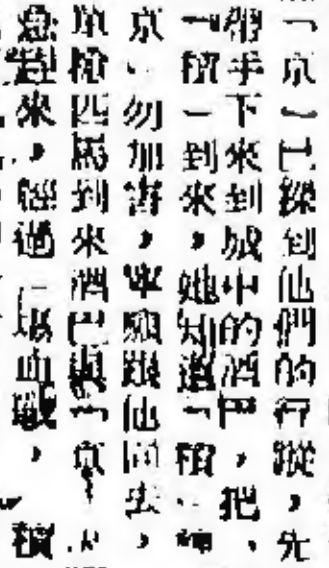 「京」已探到他們的行蹤，先
帶手下來到城中的酒吧，把
「積」到來，她知道「積
京」勿加害，寧願跟他同去，
單槍匹馬到來酒巴與「京
急趕來，經過一場血戰，積